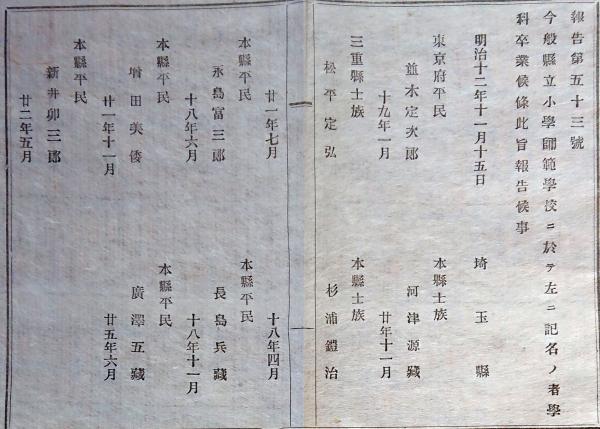 報告第五十三號
今般縣立小學師範學校ニ於テ左ニ記名ノ者學
科卒業候條此旨報告候事
明治十二年十一月十五日 埼玉縣
東京府平民
並木定次郎
十九年一月
本縣士族
河津源藏
廿年十一月
三重縣士族
松平定弘
廿一年七月
本縣士族
杉浦鎧治
十八年四月
本縣平民
永島富三郎
十八年六月
本縣平民
長島兵藏
十八年十一月
本縣平民
增田美倭
廿一年十一月
本縣平民
廣澤五藏
廿五年六月
本縣平民
新井卯三郎
廿二年五月